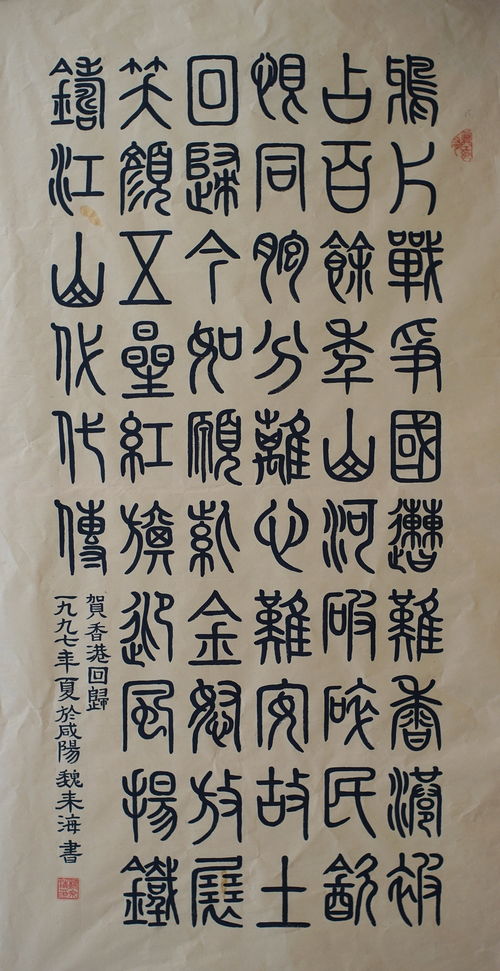 鴉片戰爭國遭難香港被
占百餘年山河破碎民飲
恨同胞分離心難安故土
回歸今如願紫金怒放展
笑顏五星紅旗迎風揚鐵
鑄江山代代傳
賀香港回歸
一九九七年夏於咸陽魏来海書